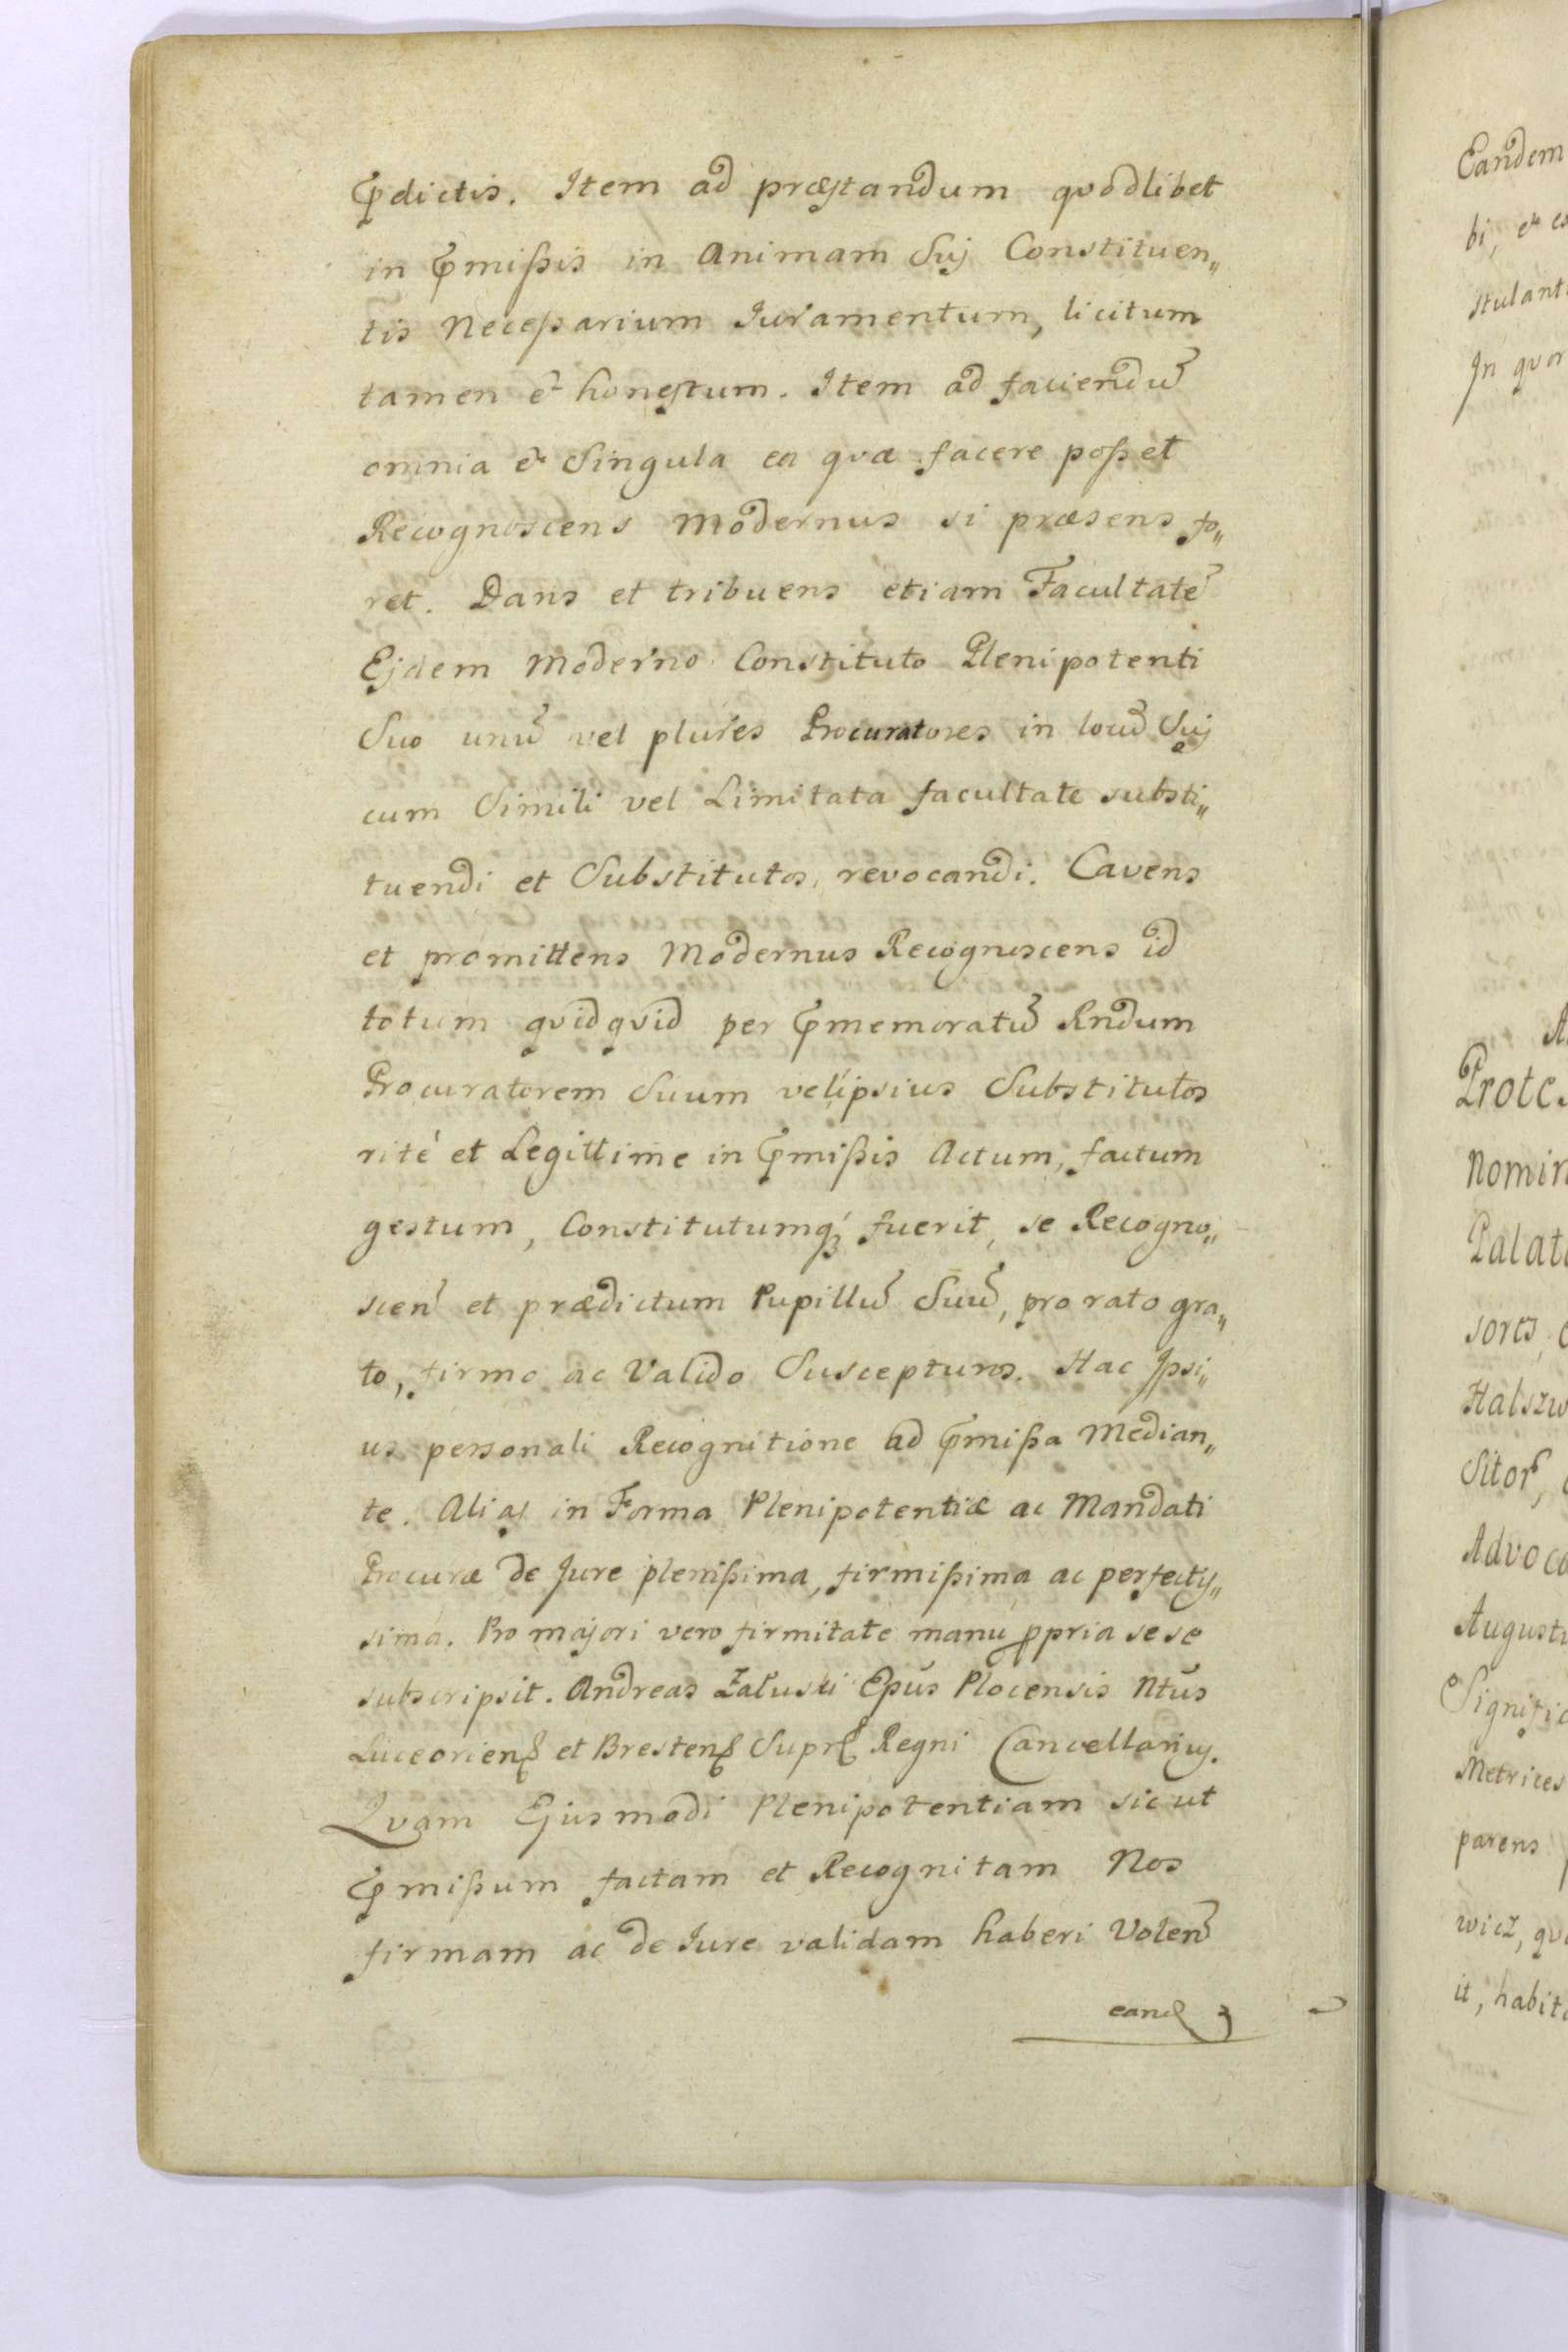 Pdictis. Item ad præstandum qvodlibet
in Pmißis in Animam Suj Constituen„
tis Neceßarium Iuramentum, licitum
tamen & honestum. Item ad faciendũ
omnia & Singula ea qvæ facere poßet
Recognoscens Modernus si præsens fo„
ret. Dans et tribuens etiam Facultatẽ
Ejdem Moderno Constituto Plenipotenti
Suo unũ vel plures Procuratores in locũ Suj
cum Simili vel Limitata facultate substi„
tuendi et Substitutos, revocandi. Cavens
et promittens Modernus Recognoscens id
totum qvidqvid per Pmemoratũ Rndum
Procuratorem Suum vel ipsius Substitutos
ritè et Legittime in Pmißis Actum, factum
gestum, Constitutumq́ fuerit, se Recogno„
scen̄ et prædictum Pupillũ Suũ, pro rato gra„
to, firmo ac Valido Suscepturos. Hac Ipsi„
us personali Recognitione ad Pmißa Median„
te. Alias in Forma Plenipotentiæ ac Mandati
Procuræ de Jure plenißima, firmißima ac perfectis„
sima. Pro majori vero firmitate manu ppria sese
subscripsit. Andreas Załuski Epūs Plocensis Ntūs
Luceorien̄ et Bresten̄ Supr̄ Regni Cancellarius.
Qvam Ejusmodi Plenipotentiam sicut
Pmißum factam et Recognitam Nos
firmam ac de Iure validam haberi Volen̄
eand
Eandem
bi, &
In qvor
Prote
Nomin
Palat
sores
Sitor̄,
Advoc
August
Signific
Metrices
parens
wicz, qv
it, habit